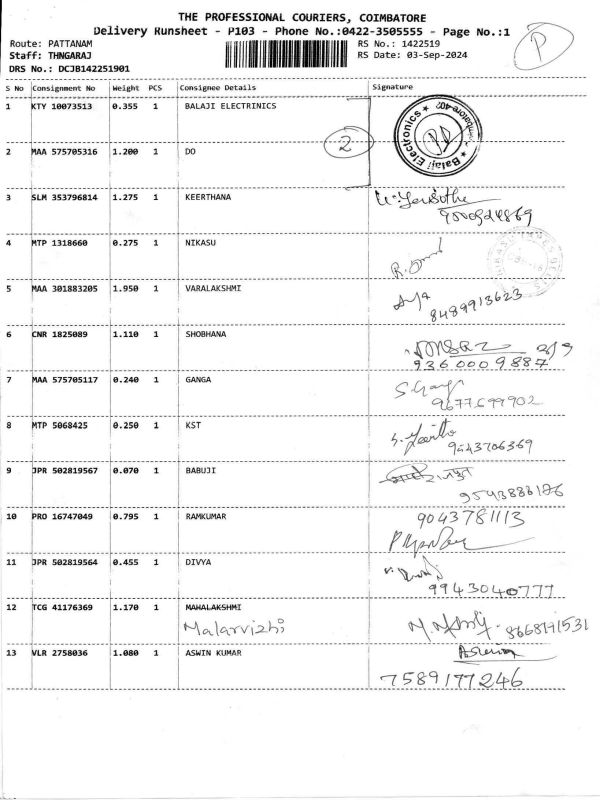 THE PROFESSIONAL COURIERS, COIMBATORE
Delivery Runsheet - P103 - Phone No.:0422-3505555 - Page No.:1
P
Route: PATTANAM RS No.: 1422519
Staff: THNGARAJ RS Date: 03-Sep-2024
DRS No.: DCJB142251901
S No Consignment No Weight PCS Consignee Details Signature
1 KTY 10073513 0.355 1 BALAJI ELECTRINICS
Balaji Electronics
2
2 MAA 575705316 1.200 1 DO
3 SLM 353796814 1.275 1 KEERTHANA
4 MTP 1318660 0.275 1 NIKASU
5 MAA 301883205 1.950 1 VARALAKSHMI
8489913623
6 CNR 1825089 1.110 1 SHOBHANA
9360009887
7 MAA 575705117 0.240 1 GANGA
8 MTP 5068425 0.250 1 KST
9043706369
9 JPR 502819567 0.070 1 BABUJI
10 PRO 16747049 0.795 1 RAMKUMAR 9043781113
11 JPR 502819564 0.455 1 DIVYA
9943040777
12 TCG 41176369 1.170 1 MAHALAKSHMI
Malarvizhi 8668191531
13 VLR 2758036 1.080 1 ASWIN KUMAR
7589177246